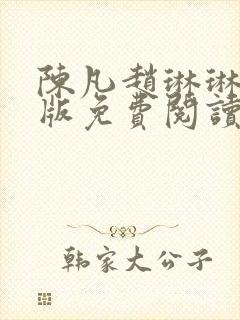 陳凡趙琳琳
版免費閱讀
韩家大公子